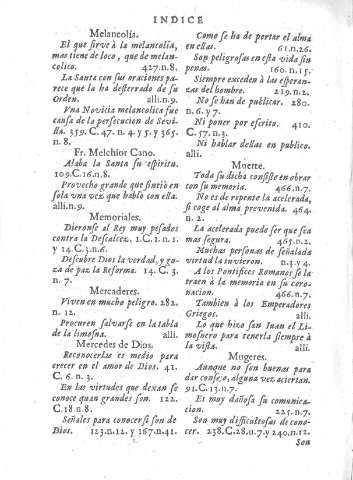 INDICE
Melancolía.
El que sirve à la melancolia,
mas tiene de loco, que de melan-
colico. 427.n.8.
La Santa con sus oraciones pa-
rece que la ha desterrado de su
Orden. alli.n.9.
Vna Novicia melancolica fue
causa de la persecucion de Sevi-
lla. 359. C. 47. n. 4. y 5. y 365.
n. 8.
Fr. Melchior Cano.
Alaba la Santa su espiritu.
109.C.16.n.8.
Provecho grande que sintiò en
sola vna vez que hablo con ella.
alli.n.9.
Memoriales.
Dieronse al Rey muy pesados
contra la Descalcez. 1.C. 1. n. 1.
y 14.C.3.n.6.
Descubre Dios la verdad, y go-
za de paz la Reforma. 14. C. 3.
n. 7.
Mercaderes.
Viven en mucho peligro. 282.
n. 12.
Procuren salvarse en la tabla
de la limosna. alli.
Mercedes de Dios.
Reconocerlas es medio para
crecer en el amor de Dios. 41.
C. 6. n. 3.
En las virtudes que dexan se
conoce quan grandes son. 122.
C.18 n.8.
Señales para conocer si son de
Dios. 123.n.12. y 167.n.41.
Como se ha de portar el alma
en ellas. 61.n.26.
Son peligrosas en esta vida sin
penas. 160. n. 15.
Siempre exceden à las esperan-
zas del hombre. 219.n.2.
No se han de publicar. 280.
n. 6. y 7.
Ni poner por escrito. 410.
C. 57. n. 3.
Ni hablar dellas en publico.
alli.
Muerte.
Toda su dicha consiste en obrar
con su memoria. 466.n.7.
No es de repente la acelerada,
si coge al alma prevenida. 464.
n. 2.
La acelerada puede ser que sea
mas segura. 465.n.2.
Muchas personas de señalada
virtud la tuvieron. n.3. y 4.
A los Pontifices Romanos se la
traen à la memoria en su coro-
nacion. 466.n.7.
Tambien à los Emperadores
Griegos. alli.
Lo que hizo san Iuan el Li-
mosnero para tenerla siempre à
la vista. alli.
Mugeres.
Aunque no son buenas para
dar consejo, alguna vez aciertan.
91.C.13.n.7.
Es muy dañosa su comunica-
cion. 225.n.7.
Son muy dificultosas de cono-
cer. 238.C.28.n.7.y 240.n.12.
Son